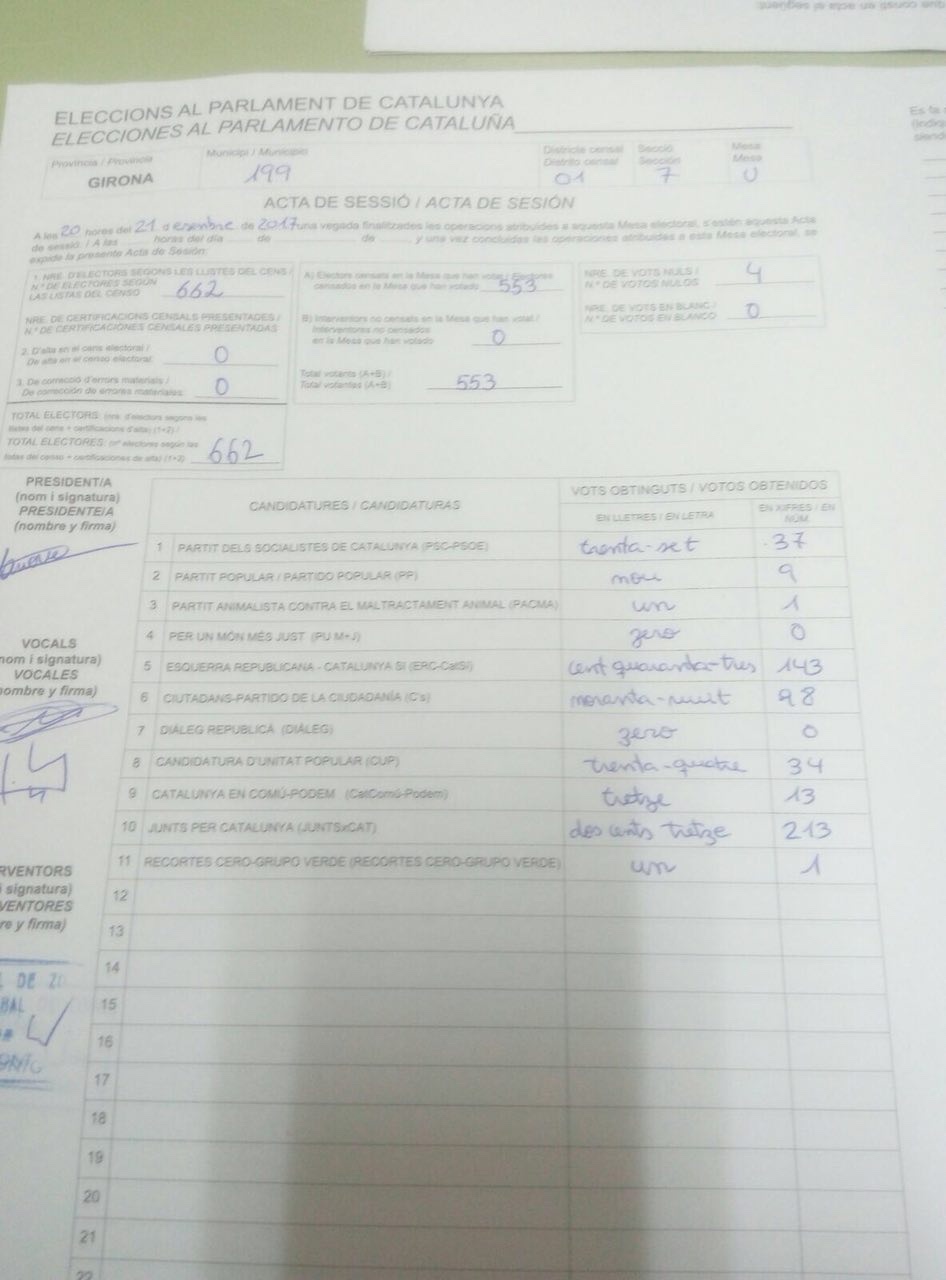 que consti en acta el següent:
ELECCIONS AL PARLAMENT DE CATALUNYA
ELECCIONES AL PARLAMENTO DE CATALUÑA
Es fa
(indiq
siend
Província / Provincia
GIRONA
Municipi / Municipio
199
Districte censal
Distrito censal
01
Secció
Sección
7
Mesa
Mesa
U
ACTA DE SESSIÓ / ACTA DE SESIÓN
A les 20 hores del 21 desembre de 2017 una vegada finalitzades les operacions atribuïdes a aquesta Mesa electoral, s'estén aquesta Acta
de sessió. / A las horas del día de de , y una vez concluidas las operaciones atribuidas a esta Mesa electoral, se
expide la presente Acta de Sesión:
1. NRE. D'ELECTORS SEGONS LES LLISTES DEL CENS /
N.º DE ELECTORES SEGÚN
LAS LISTAS DEL CENSO 662
NRE. DE CERTIFICACIONS CENSALS PRESENTADES /
N.º DE CERTIFICACIONES CENSALES PRESENTADAS
2. D'alta en el cens electoral /
De alta en el censo electoral: 0
3. De correcció d'errors materials /
De corrección de errores materiales: 0
TOTAL ELECTORS: (nre. d'electors segons les
llistes del cens + certificacions d'alta) (1+2) /
TOTAL ELECTORES: (nº electores según las
listas del censo + certificaciones de alta) (1+2) 662
A) Electors censats en la Mesa que han votat / Electores
censados en la Mesa que han votado 553
B) Interventors no censats en la Mesa que han votat /
Interventores no censados
en la Mesa que han votado 0
Total votants (A+B) /
Total votantes (A+B) 553
NRE. DE VOTS NULS /
N.º DE VOTOS NULOS 4
NRE. DE VOTS EN BLANC /
N.º DE VOTOS EN BLANCO 0
PRESIDENT/A
(nom i signatura)
PRESIDENTE/A
(nombre y firma)
VOCALS
nom i signatura)
VOCALES
nombre y firma)
RVENTORS
i signatura)
VENTORES
re y firma)
CANDIDATURES / CANDIDATURAS
VOTS OBTINGUTS / VOTOS OBTENIDOS
EN LLETRES / EN LETRA
EN XIFRES / EN
NÚM.
1 PARTIT DELS SOCIALISTES DE CATALUNYA (PSC-PSOE) trenta-set 37
2 PARTIT POPULAR / PARTIDO POPULAR (PP) nou 9
3 PARTIT ANIMALISTA CONTRA EL MALTRACTAMENT ANIMAL (PACMA) un 1
4 PER UN MÓN MÉS JUST (PU M+J) zero 0
5 ESQUERRA REPUBLICANA - CATALUNYA SÍ (ERC-CatSí) cent quaranta-tres 143
6 CIUTADANS-PARTIDO DE LA CIUDADANÍA (C's) noranta-vuit 98
7 DIÀLEG REPUBLICÀ (DIÀLEG) zero 0
8 CANDIDATURA D'UNITAT POPULAR (CUP) trenta-quatre 34
9 CATALUNYA EN COMÚ-PODEM (CatComú-Podem) tretze 13
10 JUNTS PER CATALUNYA (JUNTSxCAT) dos cents tretze 213
11 RECORTES CERO-GRUPO VERDE (RECORTES CERO-GRUPO VERDE) un 1
12
13
14
15
16
17
18
19
20
21
22
DE